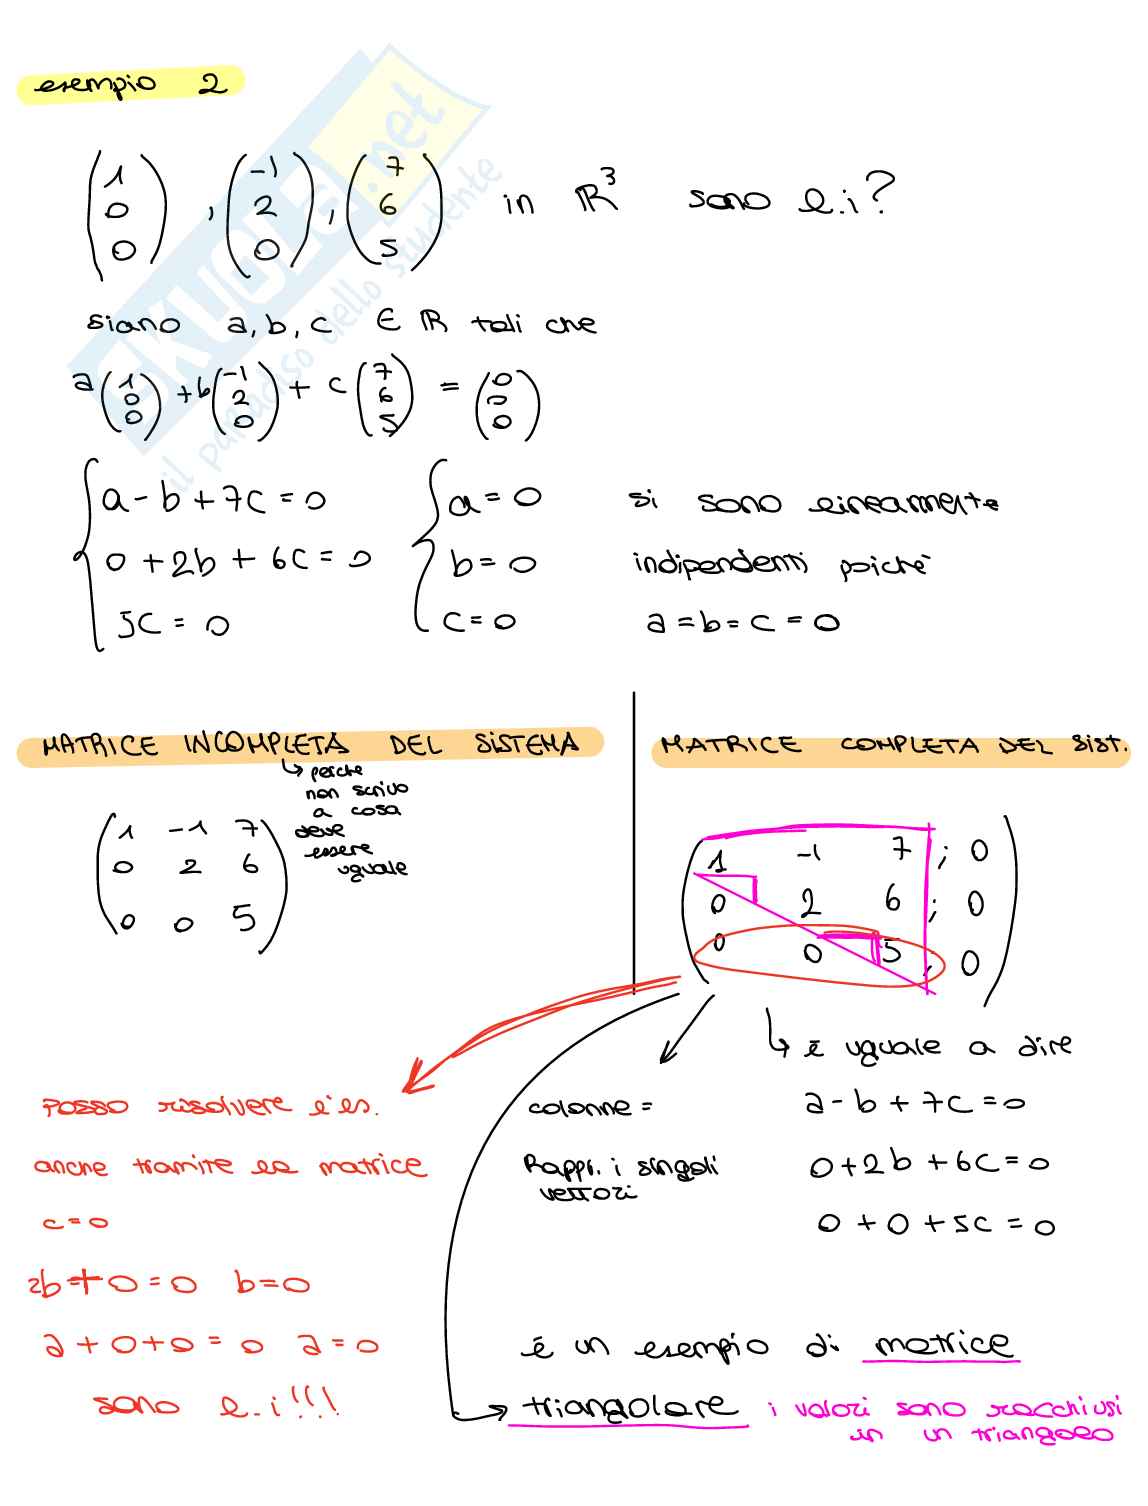 esempio 2
(1 0 0), (-1 2 0), (7 6 5) in ℝ³ sono l.i?
siano a, b, c ∈ ℝ tali che
a(1 0 0) + b(-1 2 0) + c(7 6 5) = (0 0 0)
a - b + 7c = 0
0 + 2b + 6c = 0
5c = 0
a = 0
b = 0
c = 0
si sono linearmente
indipendenti poichè
a = b = c = 0
MATRICE INCOMPLETA DEL SISTEMA
↳ perche
non scrivo
a cosa
deve
essere
uguale
1 -1 7
0 2 6
0 0 5
MATRICE COMPLETA DEL SIST.
1 -1 7 ; 0
0 2 6 ; 0
0 0 5 ; 0
↳ è uguale a dire
a - b + 7c = 0
0 + 2b + 6c = 0
0 + 0 + 5c = 0
colonne =
Rappr. i singoli
vettori
Posso risolvere l'es.
anche tramite la matrice
c = 0
2b + 0 = 0 b = 0
a + 0 + 0 = 0 a = 0
sono l.i!!!
è un esempio di matrice
triangolare i valori sono racchiusi
in un triangolo
SKUOLA.net
il paradiso dello studente